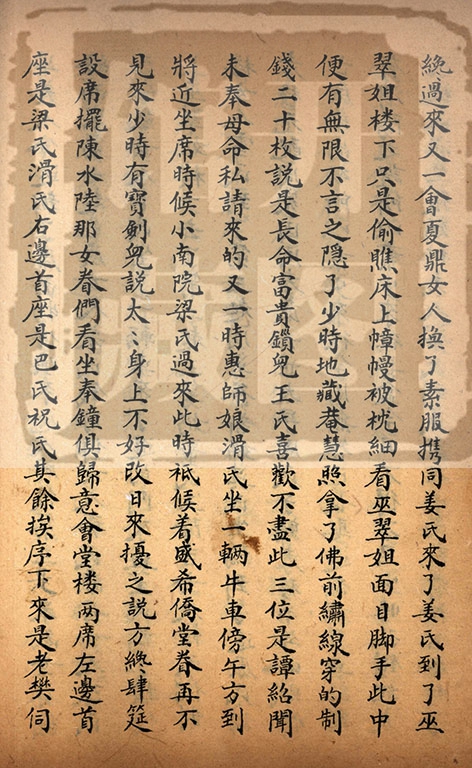 纔過來又一會夏鼎女人換了素服携同姜氏來了姜氏到了巫
翠姐楼下只是偷瞧床上幛幔被枕細看巫翠姐面目脚手此中
便有無限不言之隱了少時地藏菴慧照拿了佛前繡線穿的制
錢二十枚説是長命富貴鎖兒王氏喜歡不盡此三位是譚紹聞
未奉母命私請來的又一時惠師娘滑氏坐一輛牛車傍午方到
將近坐席時候小南院梁氏過來此時祗候着盛希僑堂眷再不
見來少時有寳劍兒説太〻身上不好改日來擾之説方終肆筵
設席擺陳水陸那女眷們看坐奉鐘俱歸意會堂楼两席左邊首
座是梁氏滑氏右邊首座是巴氏祝氏其餘挨序下來是老樊伺